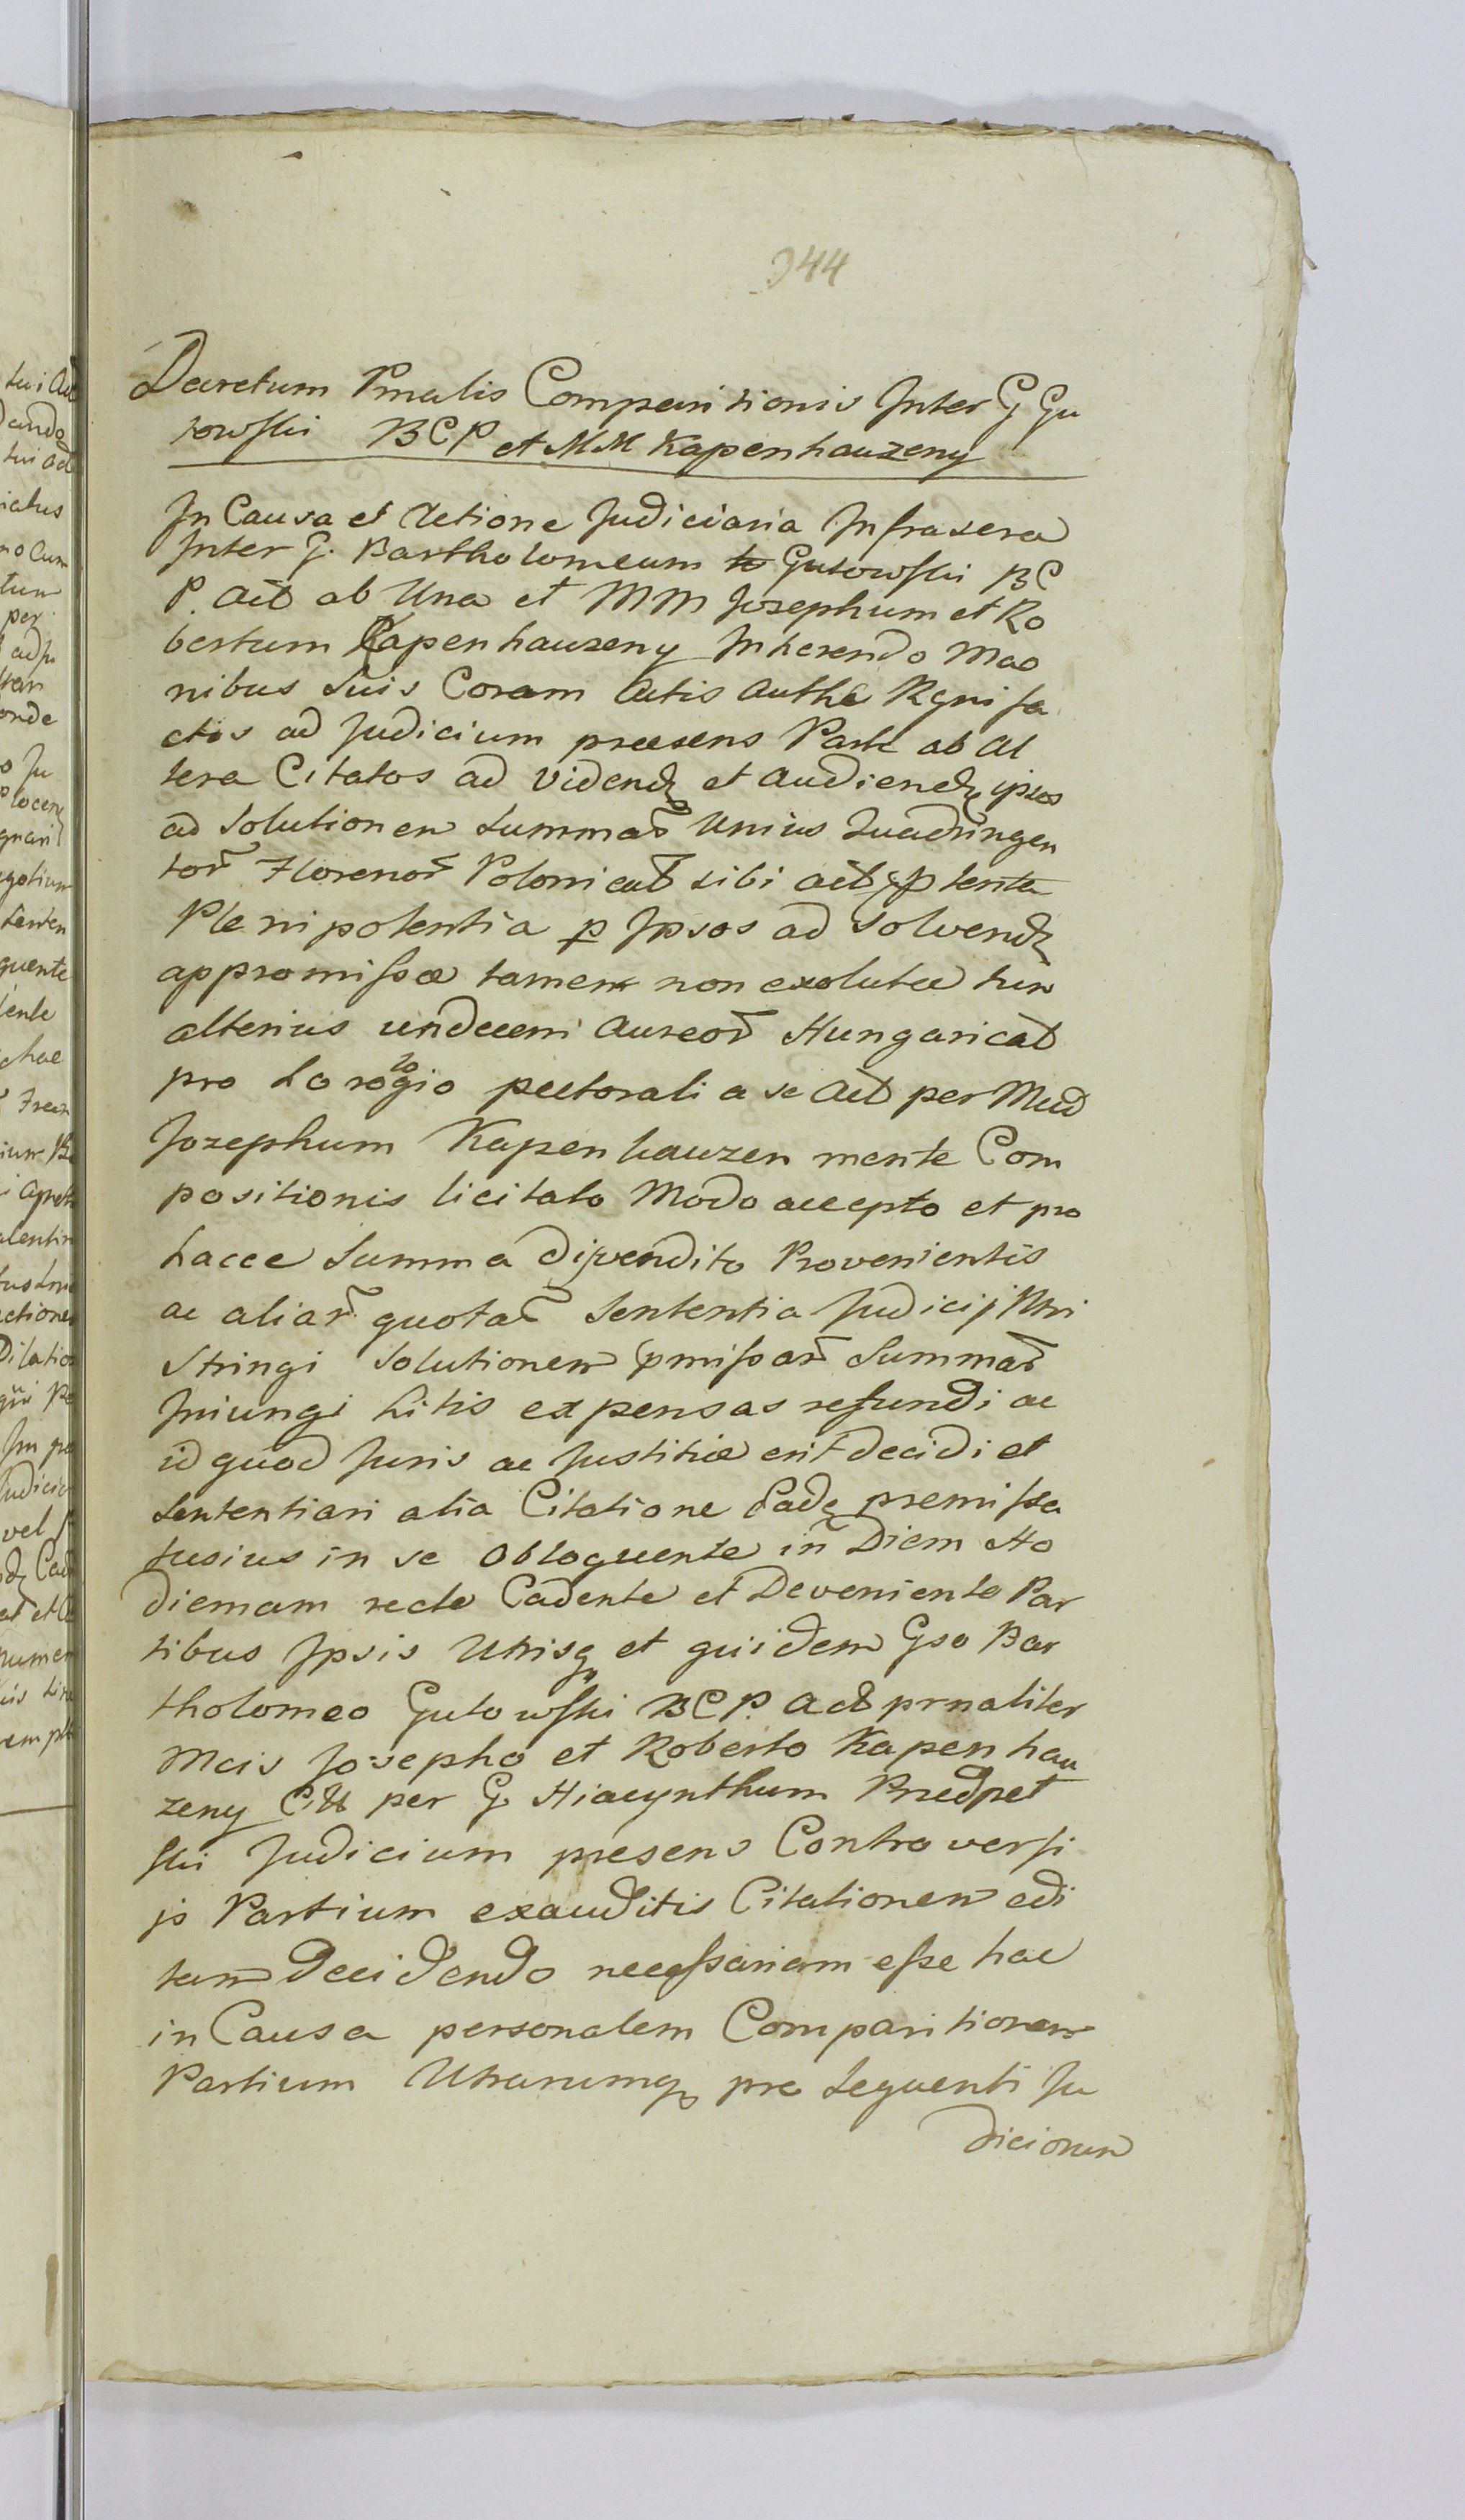 944
Decretum Pmalis Comparitionis Inter G Gu
towski BCP et MM Kapenhauzeny
In Causa et Actione Judiciaria Infrasera
Inter G. Bartholomeum Gutowski BC
P. Act ab Una et MM Jozephum et Ro
bertum Kapenhauzeny Inherendo Mao
nibus Suis Coram Actis Authẽ Rgni fa
ctis ad Judicium præsens Parte ab Al
tera Citatos ad Videndꝫ et Audiendꝫ ipsos
ad Solutionem Summar̃ Unius Quadringen
tor̃ Florenor̃ Polonical sibi act tenta
Plenipotentia ꝑ Ipsos ad Solvendꝫ
appromissæ tamen non exolutæ tum
alterius undecem Aureor̃ Hungarical
pro Horologio pectorali a se Act per Mcud
Jozephum Kapenhauzen mente Com
positionis licitato Modo accepto et pro
hacce Summa divendito Provenientis
ac aliar̃ quotar̃ Sententia Judicij Nri
Stringi Solutionem pmissar̃ Summar̃
Iniungi Litis expensas refundi ac
id quod Juris ac Justitiæ erit decidi et
Sententiari alia Citatione Eadꝫ premissa
fusius in se Obloquente in Diem Ho
diernam recte Cadente et Deveniente Par
tibus Ipsis Utrisqꝫ et quidem Gso Bar
tholomeo Gutowski BCP. Act prnaliter
Mcis Josepho et Roberto Kapenhau
zeny Citt per G Hiacynthum Przedpet
ski Judicium presens Controversi
js Partium exauditis Citationem edi
tam Decidendo necessariam esse hac
in Causa personalem Comparitionem
Partium Utrarumqꝫ pro Sequenti Ju
diciorum